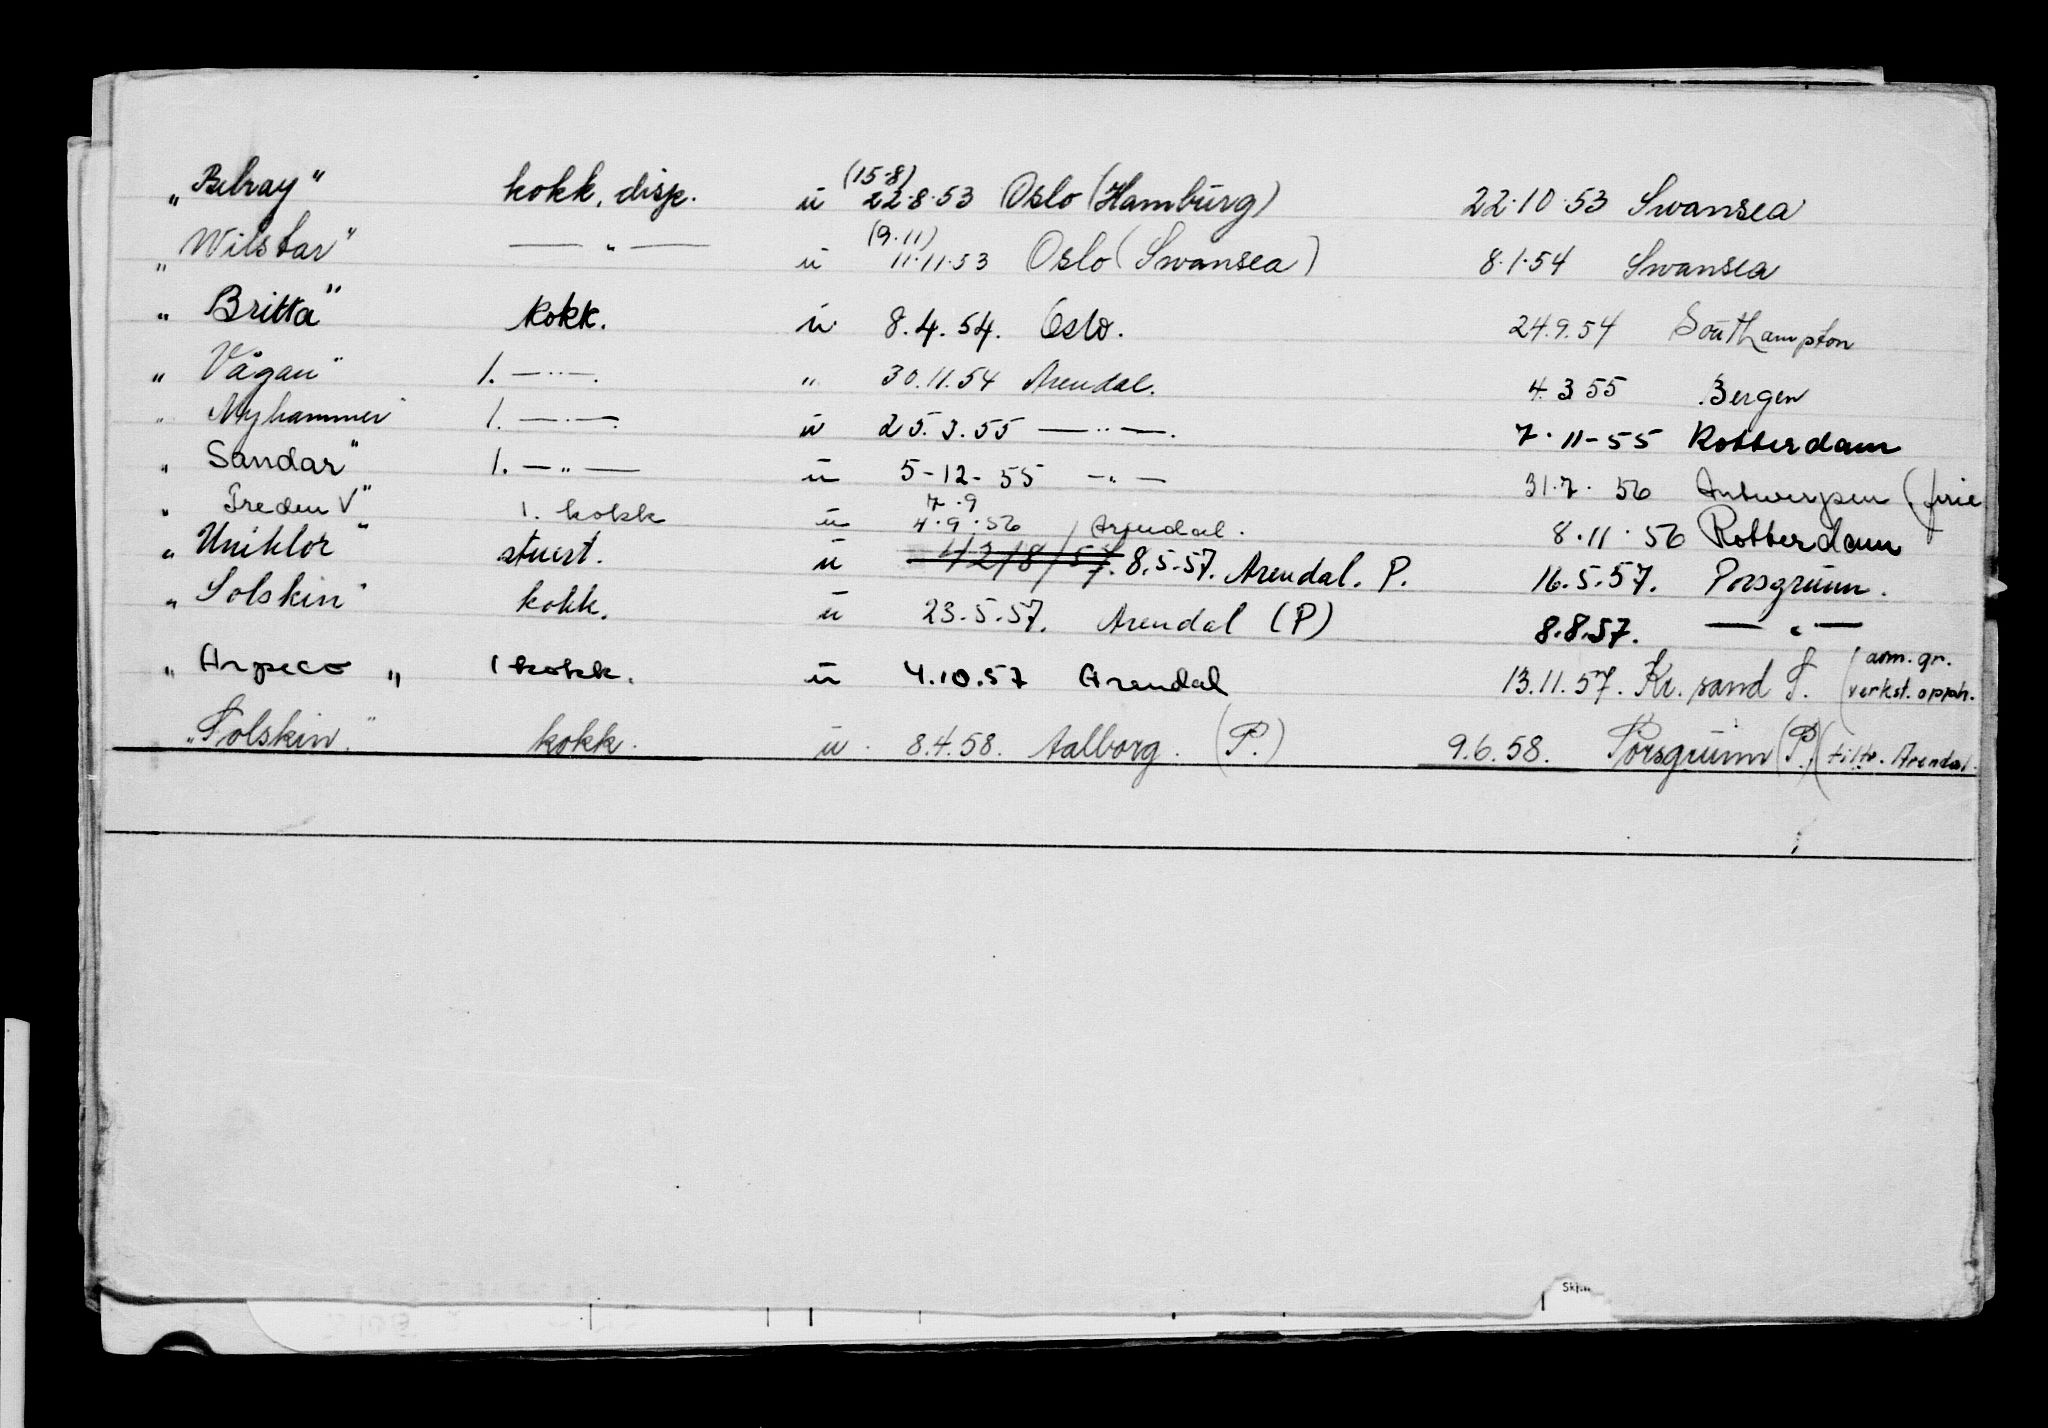 „Belray" kokk, disp. u (15-8) 22.8.53 Oslo (Hamburg) 22.10.53 Swansea
„Wilstar" — " — u (9.11) 11.11.53 Oslo (Swansea) 8.1.54 Swansea
„Britta" kokk. u 8.4.54. Oslo. 24.9.54 Southampton
„Vågan" 1. — " —. " 30.11.54 Arendal. 4.3.55 Bergen
„Nyhammer" 1. — " —. u 25.3.55 — " —. 7.11-55 Rotterdam
„Sandar" 1. — " — u 5-12-55 — " — 31.7.56 Antwerpen (ferie
„Freden V" 1. kokk u 7.9 4.9.56 Arendal. 8.11.56 Rotterdam
„Uniklor" stuert. u 8.5.57. Arendal. P. 16.5.57. Porsgrunn.
„Solskin" kokk. u 23.5.57. Arendal (P) 8.8.57. — " —
„Arpeco„ 1 kokk. u 4.10.57 Arendal 13.11.57. Kr. sand S. (arm. gr. verkst. opph.
„Solskin." kokk. u. 8.4.58. Aalborg. (P.) 9.6.58. Porsgrunn (P.) (tiltr. Arendal.